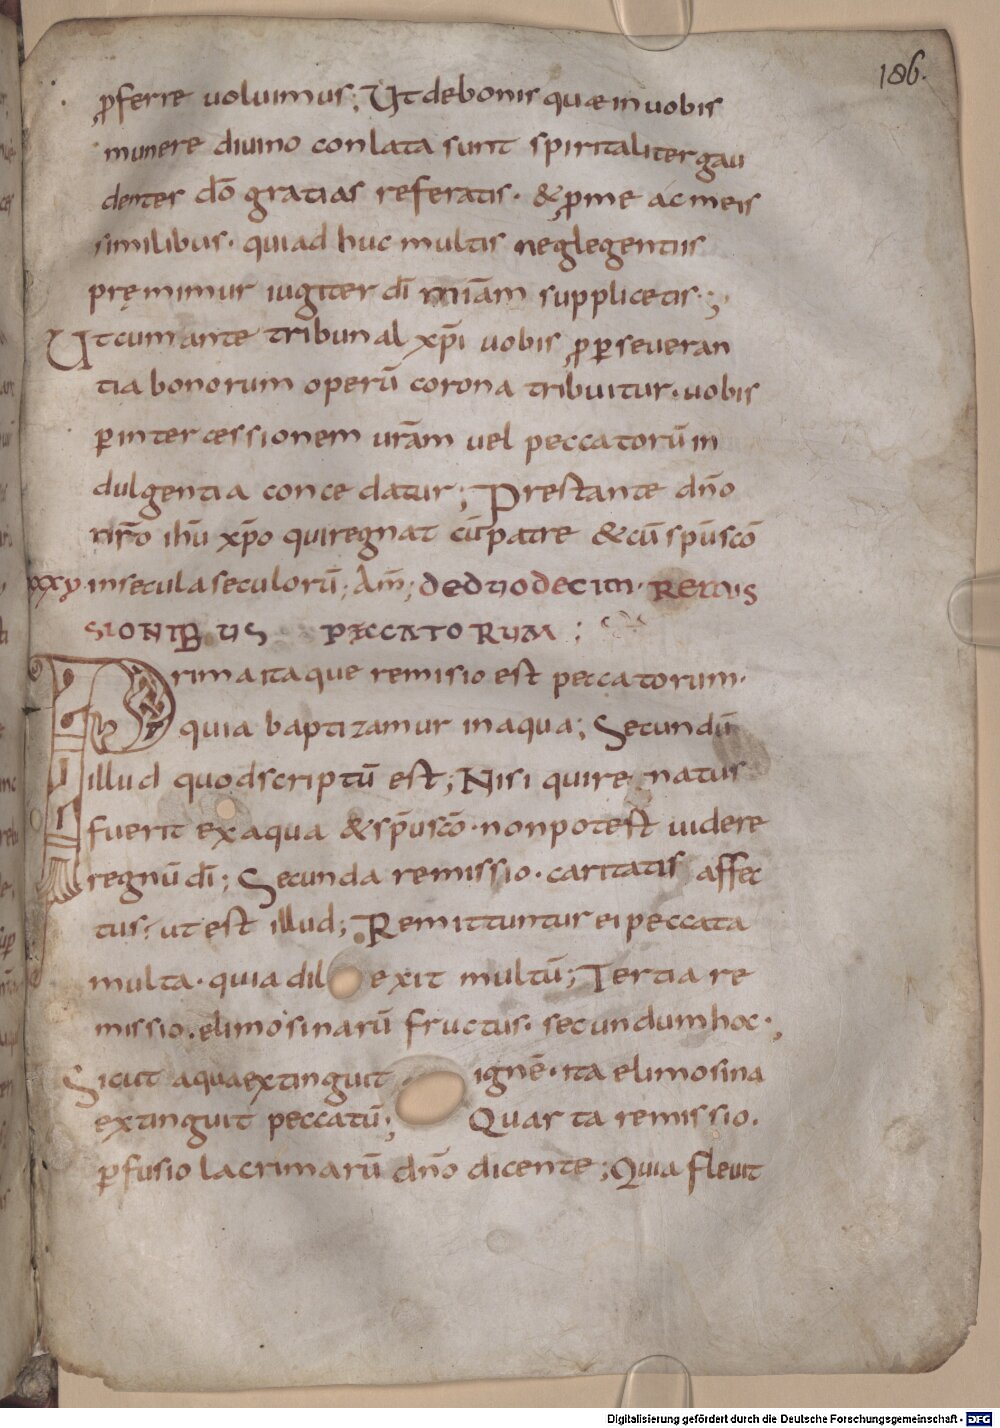 186.
ꝓferre uoluimus; Ut de bonis quæ in uobis
munere diuino conlata sunt spiritaliter gau
denter dō gratias referatis. & ꝓ me ac meis
similibus. qui ad huc multis neglegentiis
pręmimur iugiter dī miām supplicetis;
Ut cum ante tribunal xp̄i uobis ꝓ ꝑseueran
tia bonorum operū corona tribuitur. uobis
ꝑ intercessionem urām uel peccatorū in
dulgentia concedatur; Prestante dn̄o
nr̄o ihū xp̄o qui regnat cū patre & cū sp̄u scō
xxxv. in secula seculorū; Am̄; DE DUODECIM. REMIS
SIONIBUS PECCATORUM;
Prima itaque remisio est peccatorum.
quia baptizamur in aqua; Secundū
illud quod scriptū est; Nisi qui re natus
fuerit ex aqua & sp̄u scō. non potest uidere
regnū dī; Secunda remissio. caritatis affec
tus. ut est illud; Remittuntur ei peccata
multa. quia dilexit multū; Tertia re
missio. elimosinarū fructus. secundum hoc.,
Sicut aqua extinguit ignē. ita elimosina
extinguit peccatū; Quarta remissio.
ꝑfusio lacrimarū dn̄o dicente; Quia fleuit
Digitalisierung gefördert durch die Deutsche Forschungsgemeinschaft - DFG